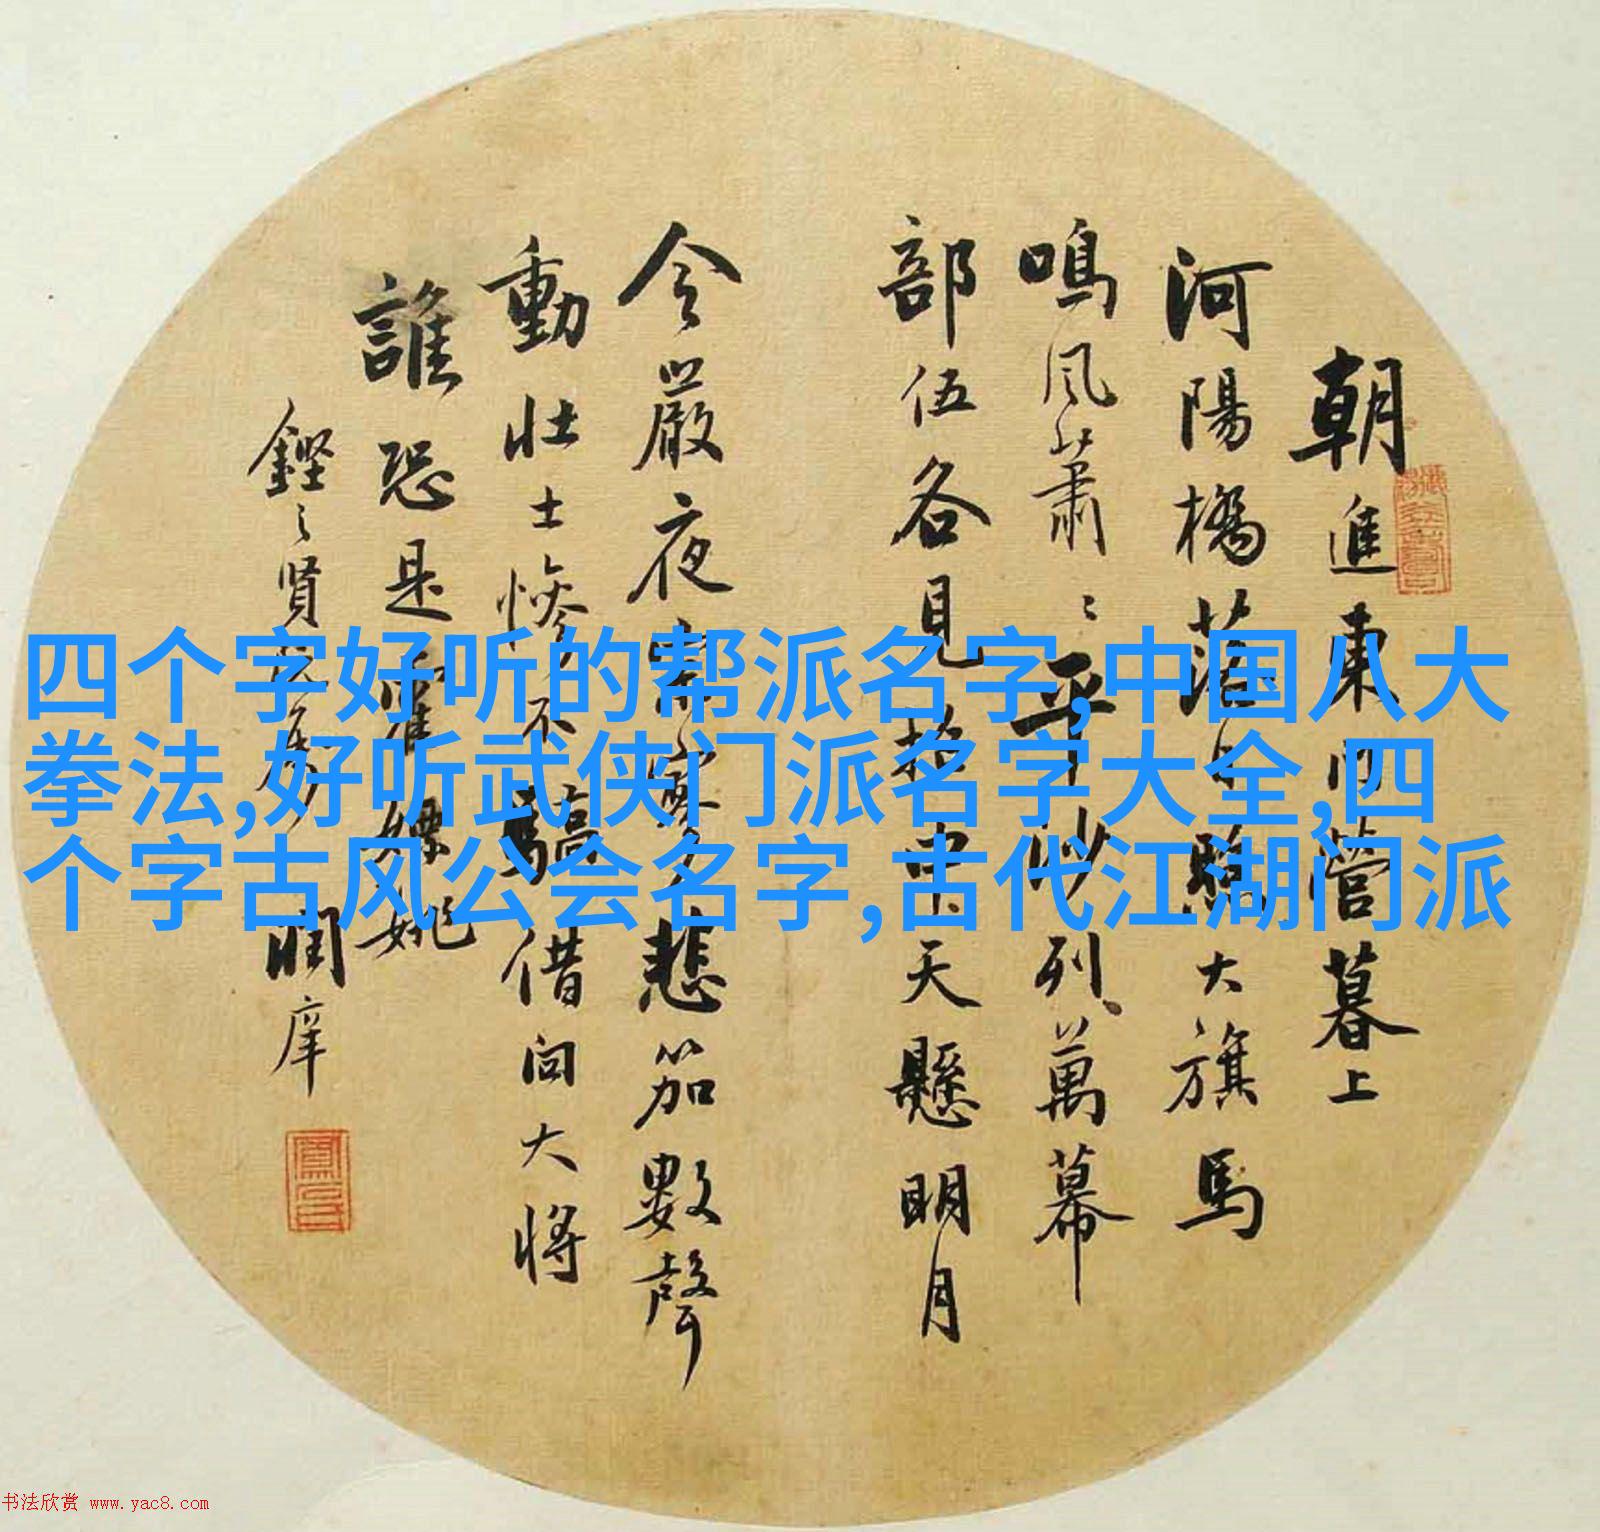 朝進東門營暮上
河陽橋落日照大旗馬
鳴風蕭〻平沙列萬幕
部伍各見招中天懸明月
令嚴夜寂寥悲笳數聲
動壯士慘不驕借問大將
誰恐是霍嫖姚
鏗之賢 潤庠
四个字好听的帮派名字,中国八大
拳法,好听武侠门派名字大全,四
个字古风公会名字,古代江湖门派
书法欣赏 www.yac8.com